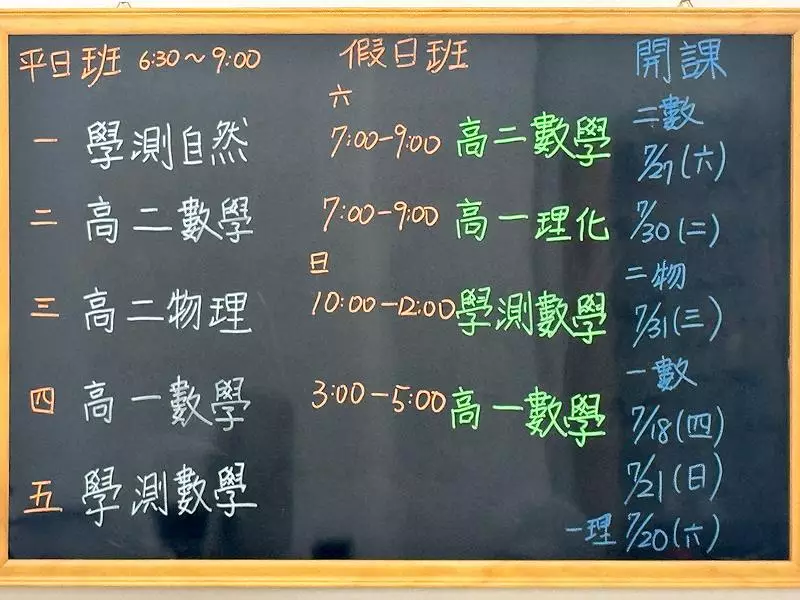 平日班 6:30～9:00
一 學測自然
二 高二數學
三 高二物理
四 高一數學
五 學測數學
假日班
六
7:00-9:00 高二數學
7:00-9:00 高一理化
日
10:00-12:00 學測數學
3:00-5:00 高一數學
開課
二數
7/27(六)
7/30(二)
二物
7/31(三)
一數
7/18(四)
7/21(日)
一理 7/20(六)